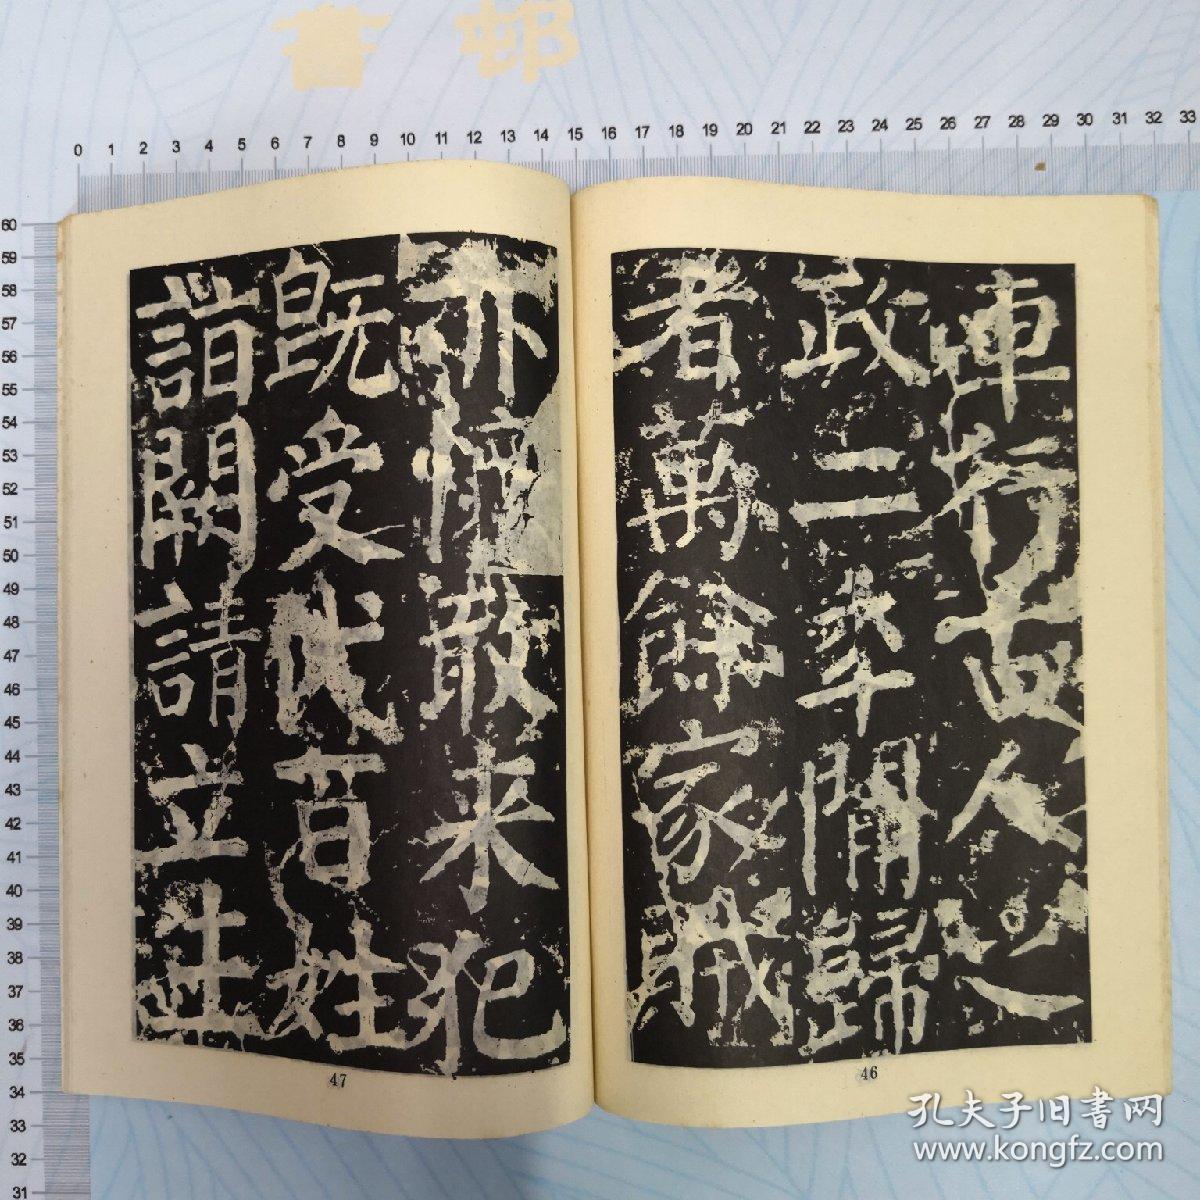 書邨
0 1 2 3 4 5 6 7 8 9 10 11 12 13 14 15 16 17 18 19 20 21 22 23 24 25 26 27 28 29 30 31 32 33
60
59
58
57
56
55
54
53
52
51
50
49
48
47
46
45
44
43
42
41
40
39
38
37
36
35
34
33
32
31
車行古人之
政二秊閒歸
者萬餘家賊
46
亦懷敢来犯
既受代百姓
詣闕請立生
47
孔夫子旧书网
www.kongfz.com